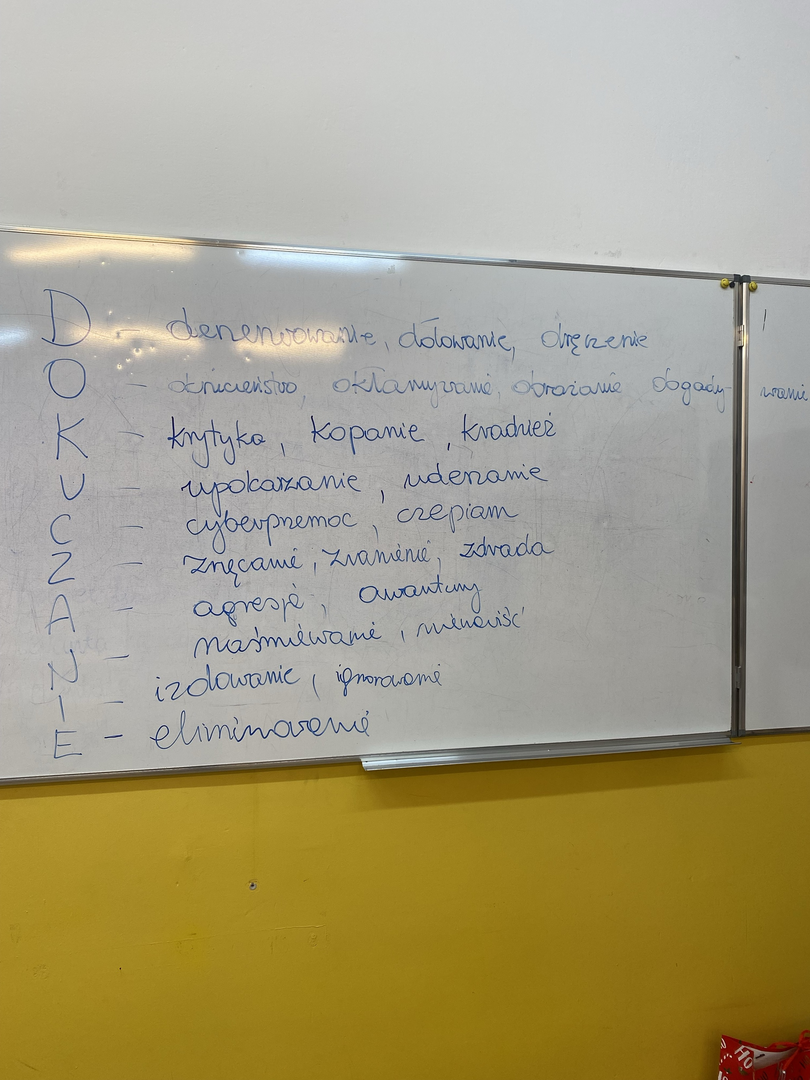 D - denerwowanie, dołowanie, dręczenie
O - okrucieństwo, okłamywanie, obrażanie obgadywanie
K - krytyka, kopanie, kradzież
U - upokarzanie, uderzanie
C - cyberprzemoc, czepianie
Z - znęcanie, zranienie, zdrada
A - agresje, awantury
N - naśmiewanie, nienawiść
I - izolowanie, ignorowanie
E - eliminowanie
Ho